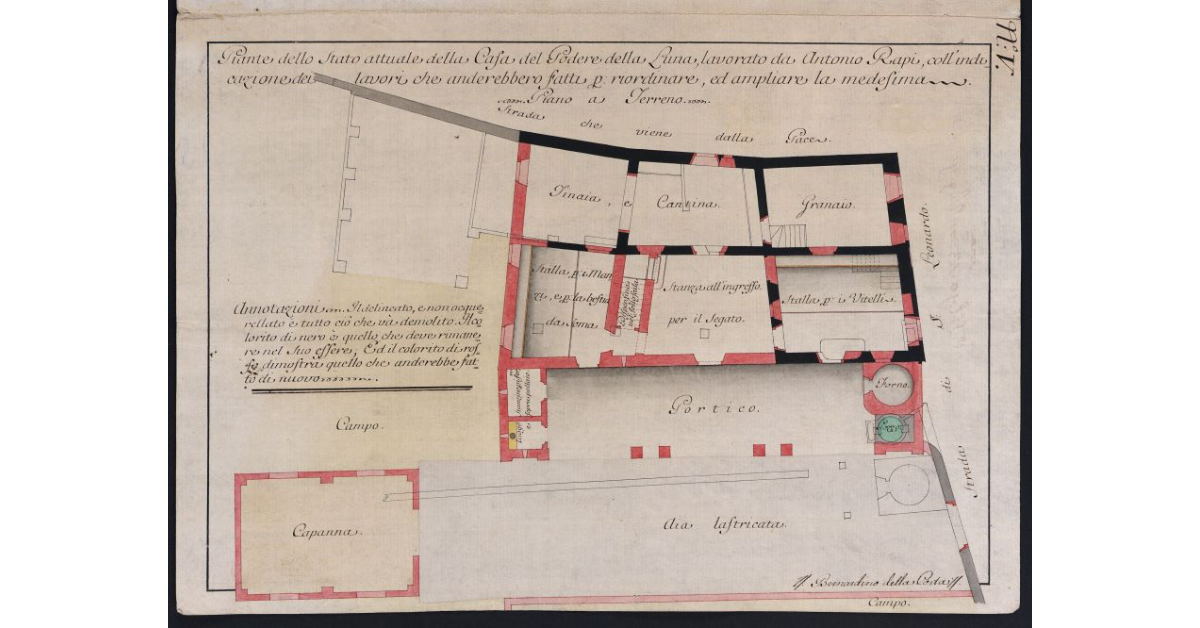 N.º V.
Piante dello Stato attuale della Casa del Podere della Luna, lavorato da Antonio Rapi, coll'indi-
cazione dei lavori che anderebbero fatti p. riordinare, ed ampliare la medesima
Piano a Terreno.
Strada che viene dalla Pace.
Tinaia, e Cantina.
Granaio.
Stalla p. i Man
zi, e p. la bestia
da Soma
Stanza all'ingresso.
per il Segato.
Stalla, p. i Vitelli.
Strada di S. Leonardo.
Annotazioni Il delineato, e non acque
rellato è tutto ciò che và demolito. Il co
lorito di nero è quello che deve rimane
re nel suo essere, Ed il colorito di ros
so dimostra quello che anderebbe fat
to di nuovo
Portico.
Forno.
Campo.
Capanna.
Aia lastricata.
Bernardino della Costa
Campo.